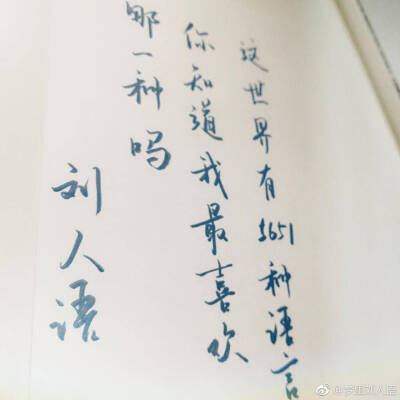 这世界有5651种语言
你知道我最喜欢
哪一种吗
刘人语
@梦里刘人语